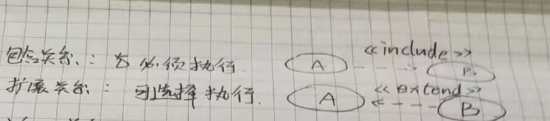 包含关系：必须执行 A <<include>> B
扩展关系：可选择执行. A <<extend>> B